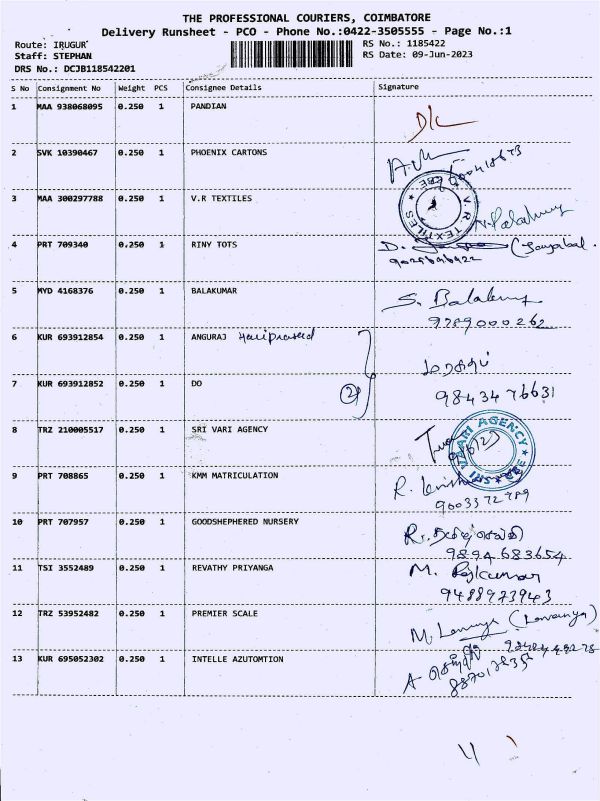 THE PROFESSIONAL COURIERS, COIMBATORE
Delivery Runsheet - PCO - Phone No.:0422-3505555 - Page No.:1
Route: IRUGUR RS No.: 1185422
Staff: STEPHAN RS Date: 09-Jun-2023
DRS No.: DCJB118542201
S No Consignment No Weight PCS Consignee Details Signature
1 MAA 938068095 0.250 1 PANDIAN
2 SVK 10390467 0.250 1 PHOENIX CARTONS
3 MAA 300297788 0.250 1 V.R TEXTILES
V.R. TEXTILES
4 PRT 709340 0.250 1 RINY TOTS
5 MYD 4168376 0.250 1 BALAKUMAR S. Balakumar
9789000262
6 KUR 693912854 0.250 1 ANGURAJ Hariprasad
7 KUR 693912852 0.250 1 DO 2 9843476631
8 TRZ 210005517 0.250 1 SRI VARI AGENCY
SRI VAARI AGENCY
9 PRT 708865 0.250 1 KMM MATRICULATION
9003372789
10 PRT 707957 0.250 1 GOODSHEPHERED NURSERY
9894683654
11 TSI 3552489 0.250 1 REVATHY PRIYANGA M. Rajkumar
9488973943
12 TRZ 53952482 0.250 1 PREMIER SCALE (Lavanya)
13 KUR 695052302 0.250 1 INTELLE AZUTOMTION